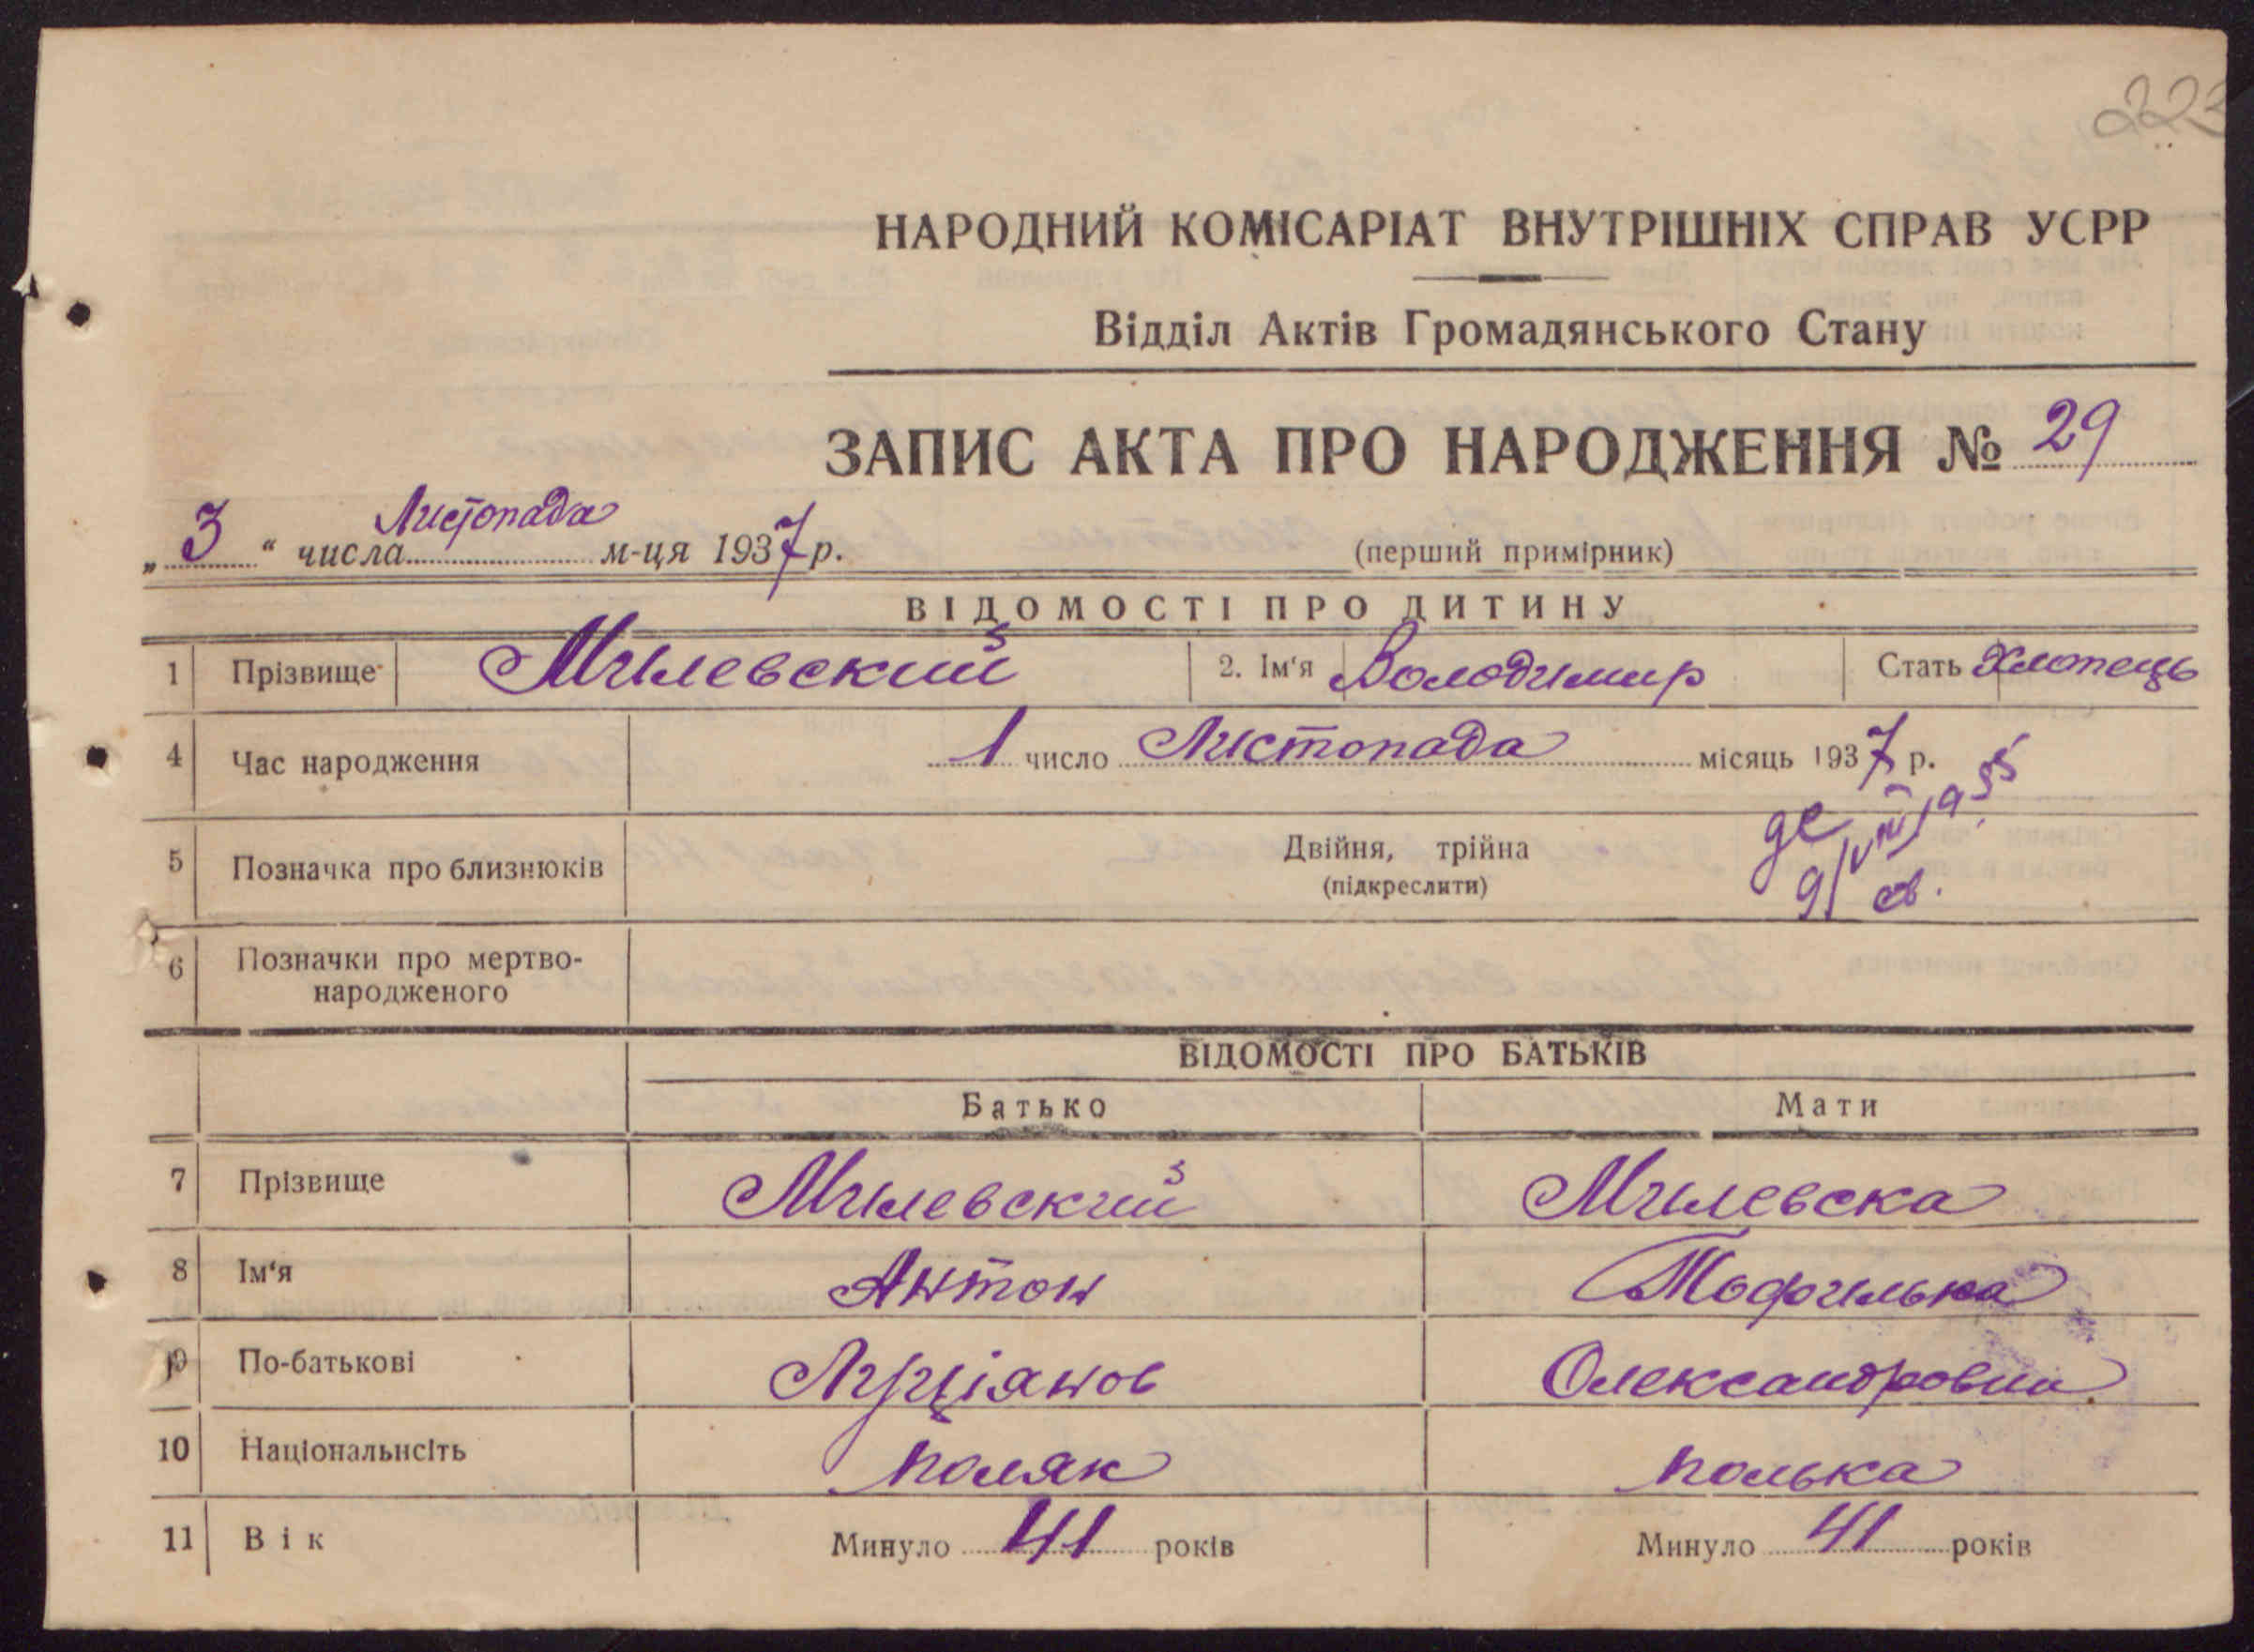 223
НАРОДНИЙ КОМІСАРІАТ ВНУТРІШНІХ СПРАВ УСРР
Відділ Актів Громадянського Стану
ЗАПИС АКТА ПРО НАРОДЖЕННЯ № 29
„3“ числа Листопада м-ця 1937 р. (перший примірник)
ВІДОМОСТІ ПРО ДИТИНУ
1 Прізвище Милевский 2. Ім'я Володимир Стать Хлопець
4 Час народження 1 число Листопада місяць 1937 р.
5 Позначка про близнюків Двійня, трійна
(підкреслити)
6 Позначки про мертво-
народженого
ВІДОМОСТІ ПРО БАТЬКІВ
Батько Мати
7 Прізвище Милевский Милевска
8 Ім'я Антон Тофилька
9 По-батькові Луціянов Олександровна
10 Національнсіть поляк полька
11 Вік Минуло 41 років Минуло 41 років